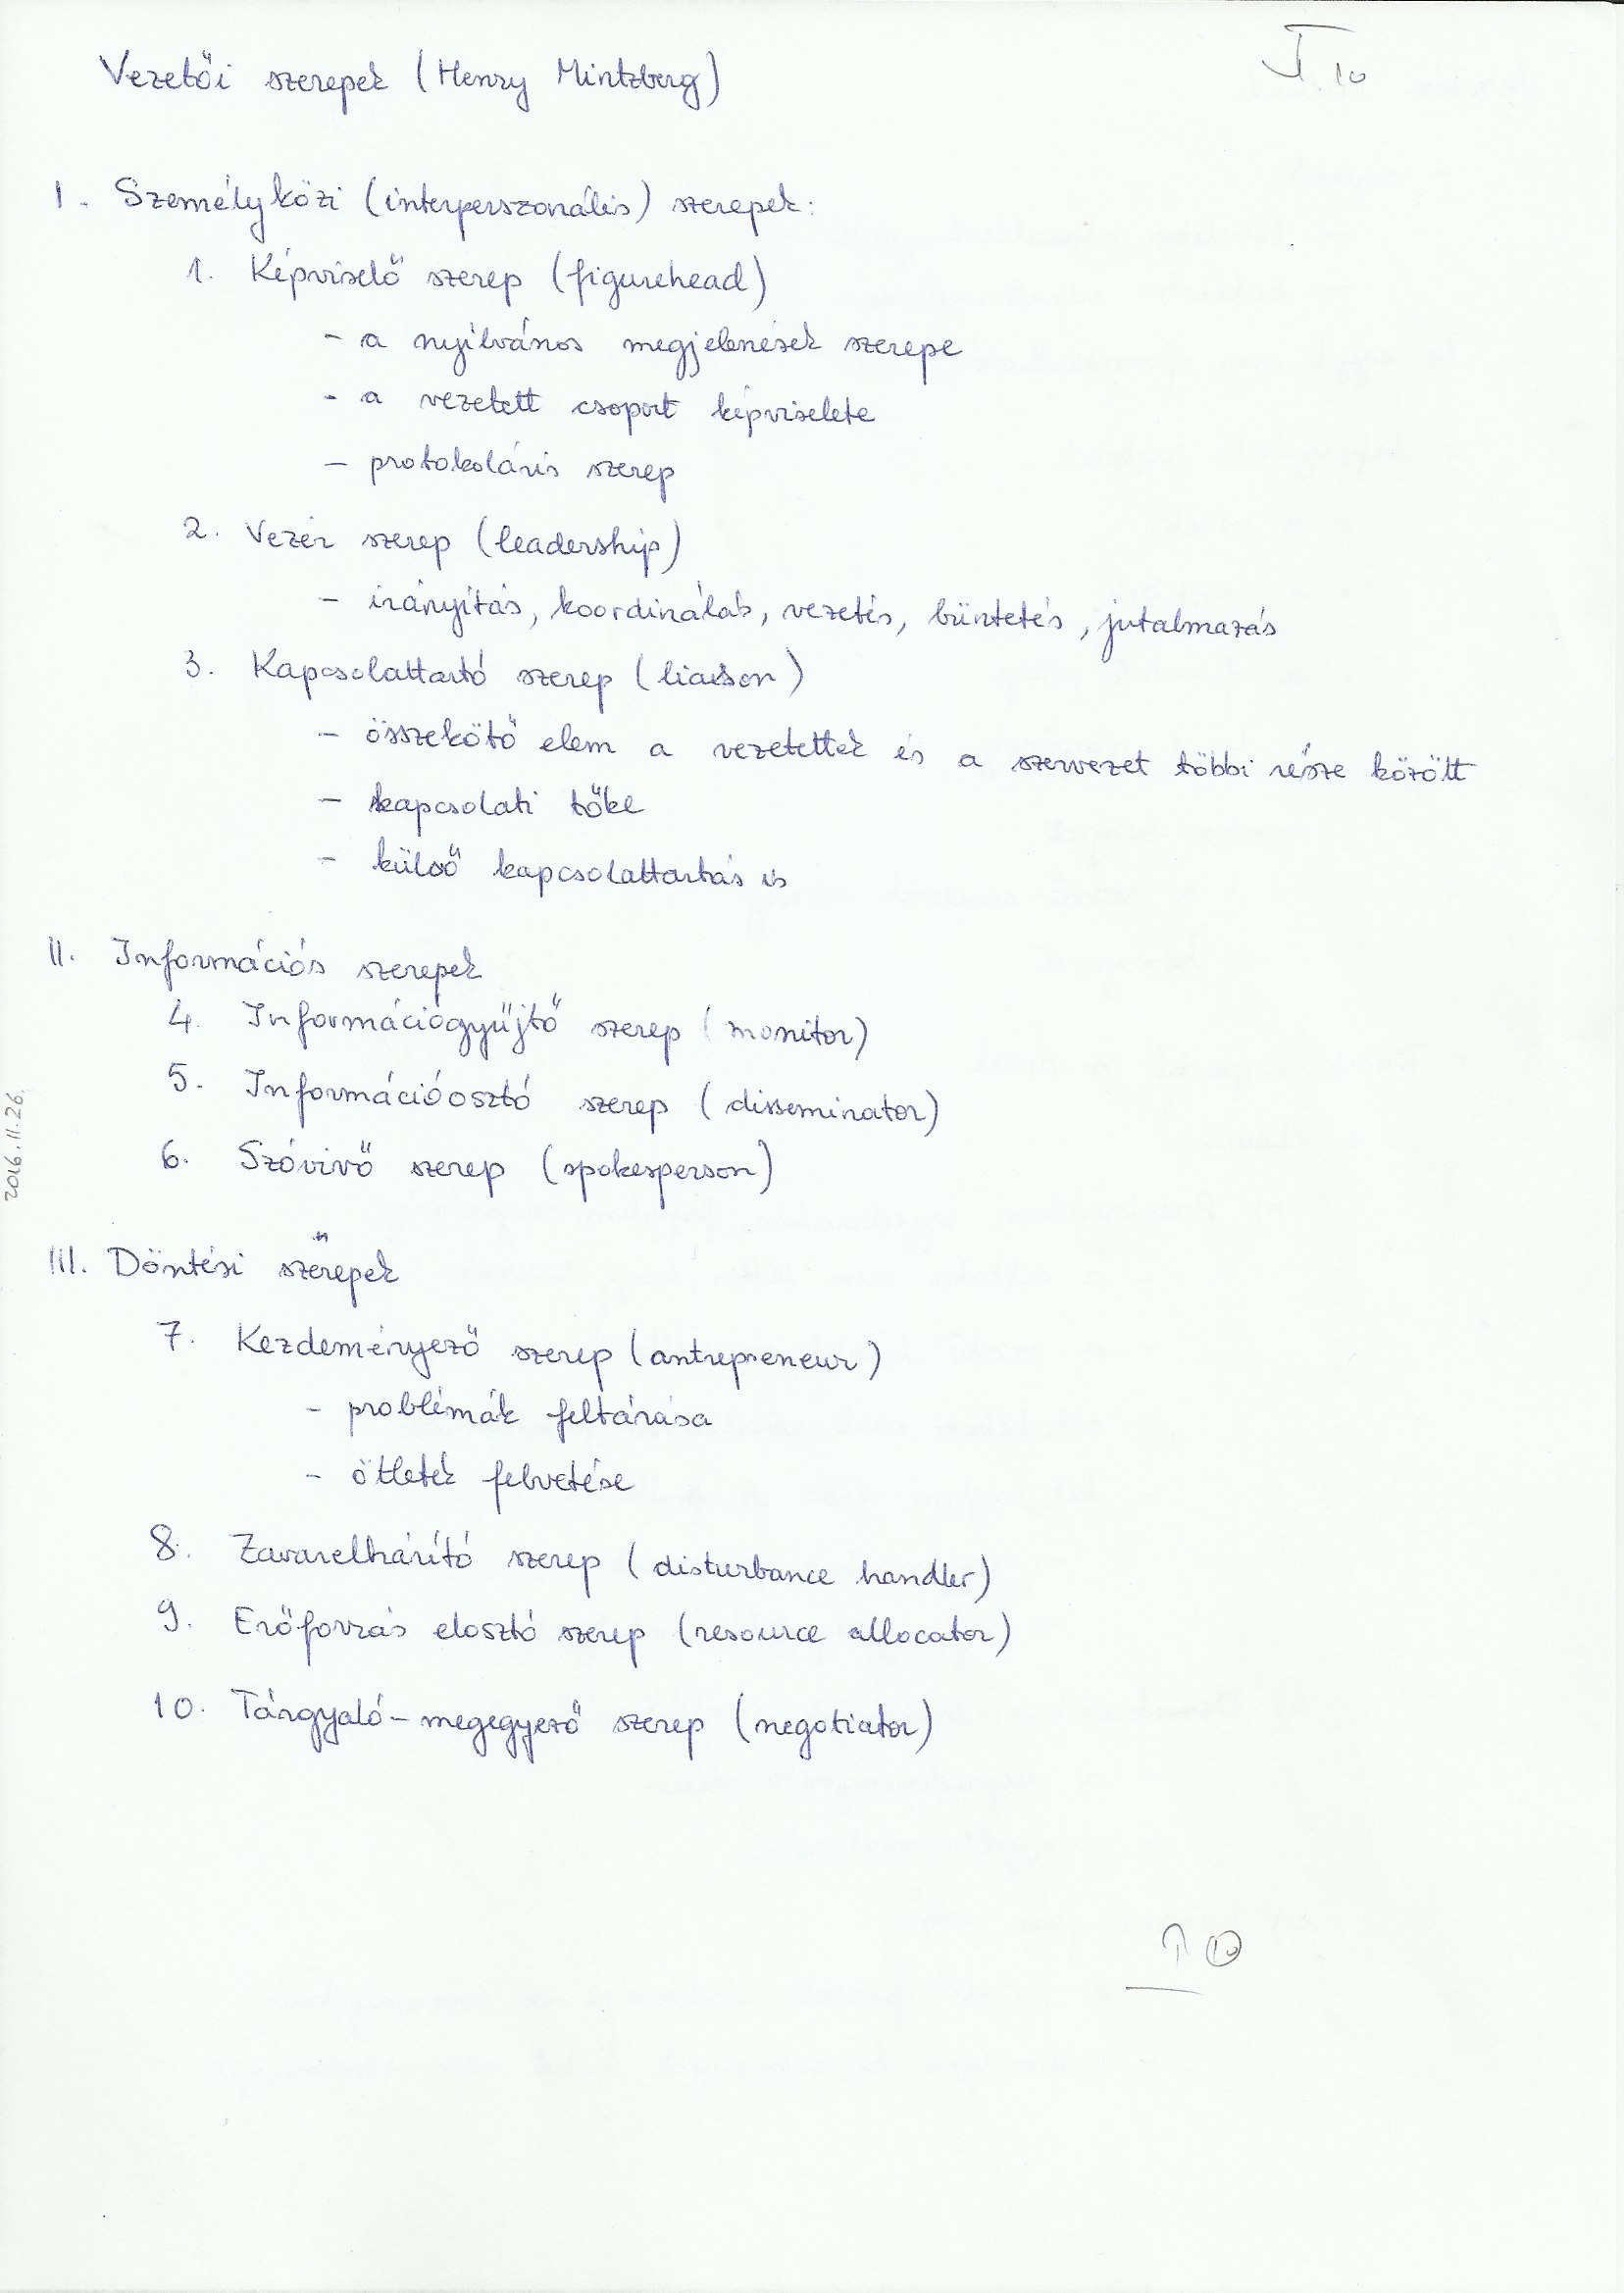 I 10
Vezetői szerepek (Henry Mintzberg)
I. Személyközi (interperszonális) szerepek:
1. Képviselő szerep (figurehead)
- a nyilvános megjelenések szerepe
- a vezetett csoport képviselete
- protokoláris szerep
2. Vezér szerep (leadership)
- irányítás, koordinálás, vezetés, büntetés, jutalmazás
3. Kapcsolattartó szerep (liaison)
- összekötő elem a vezetettek és a szervezet többi része között
- kapcsolati tőke
- külső kapcsolattartás is
II. Információs szerepek
4. Információgyűjtő szerep (monitor)
5. Információosztó szerep (disseminator)
6. Szóvivő szerep (spokesperson)
2016.11.26.
III. Döntési szerepek
7. Kezdeményező szerep (antrepreneur)
- problémák feltárása
- ötletek felvetése
8. Zavarelhárító szerep (disturbance handler)
9. Erőforrás elosztó szerep (resource allocator)
10. Tárgyaló-megegyező szerep (negotiator)
10